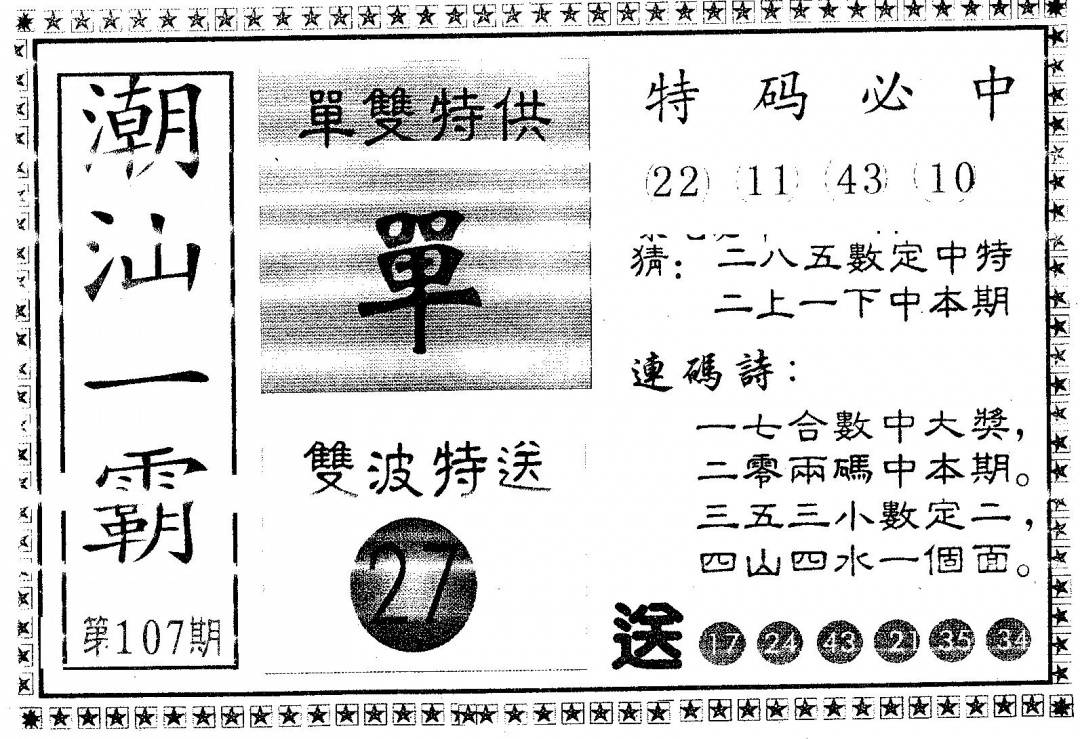 潮汕一霸
第107期
單雙特供
單
雙波特送
27
特码必中
22 11 43 10
猜：二八五數定中特
二上一下中本期
連碼詩：
一七合數中大獎，
二零兩碼中本期。
三五三小數定二，
四山四水一個面。
送 17 24 43 21 35 34